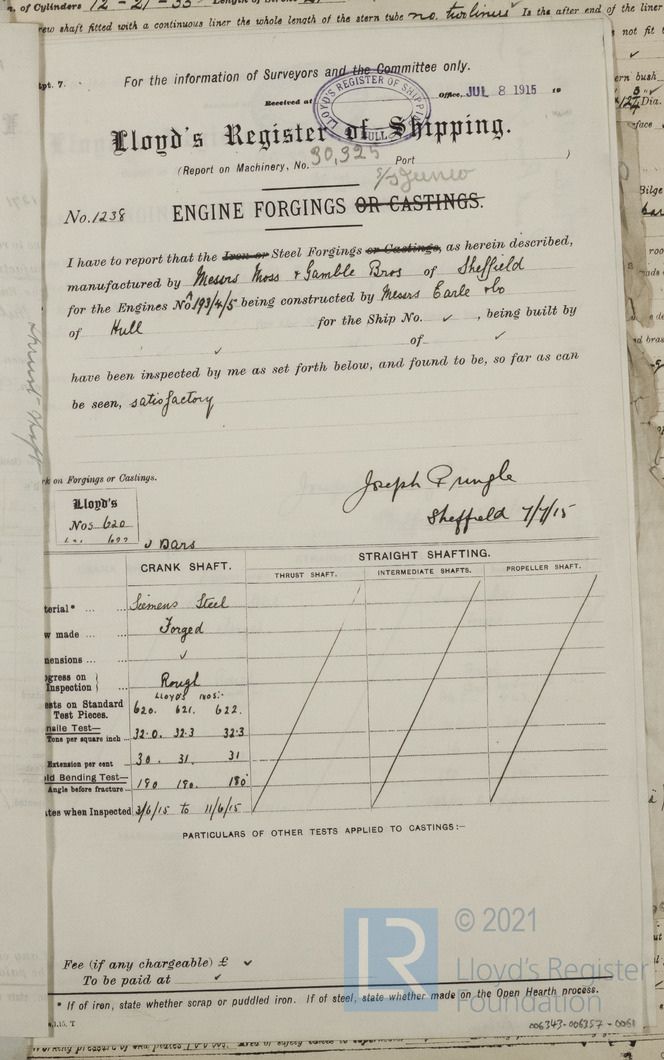 n. of Cylinders 12 - 21 - 35 Length of Stroke
rew shaft fitted with a continuous liner the whole length of the stern tube no. two liners Is the after end of the liner
not fit
pt. 7.
For the information of Surveyors and the Committee only.
Received at Office, JUL 8 1915 19
LLOYD'S REGISTER OF SHIPPING HULL
Lloyd's Register of Shipping.
(Report on Machinery, No. 30,325 Port )
No. 1238 ENGINE FORGINGS OR CASTINGS.
I have to report that the Iron or Steel Forgings or Castings, as herein described,
manufactured by Messrs Moss & Gamble Bros of Sheffield
for the Engines No 193/4/5 being constructed by Messrs Earle & Co
of Hull for the Ship No. ✓ , being built by
✓ of ✓
have been inspected by me as set forth below, and found to be, so far as can
be seen, satisfactory
Thrust Shaft
rk on Forgings or Castings.
Joseph Pringle
Sheffield 7/7/15
Lloyd's
Nos. 620
622
✓ Bars
CRANK SHAFT. STRAIGHT SHAFTING.
THRUST SHAFT. INTERMEDIATE SHAFTS. PROPELLER SHAFT.
terial* ... ... Siemens Steel
w made ... ... Forged
mensions ... ... ✓
ogress on Inspection } ... Rough
Lloyd's Nos:-
ests on Standard Test Pieces. 620. 621. 622.
nsile Test— Tons per square inch ... 32.0. 32.3 32.3
Extension per cent 30. 31. 31
ld Bending Test— Angle before fracture— 180 180. 180°
tes when Inspected 3/6/15 to 11/6/15
PARTICULARS OF OTHER TESTS APPLIED TO CASTINGS:—
Fee (if any chargeable) £ ✓
To be paid at ✓
* If of iron, state whether scrap or puddled iron. If of steel, state whether made on the Open Hearth process.
LR © 2021
Lloyd's Register
Foundation
006343-006357-0061